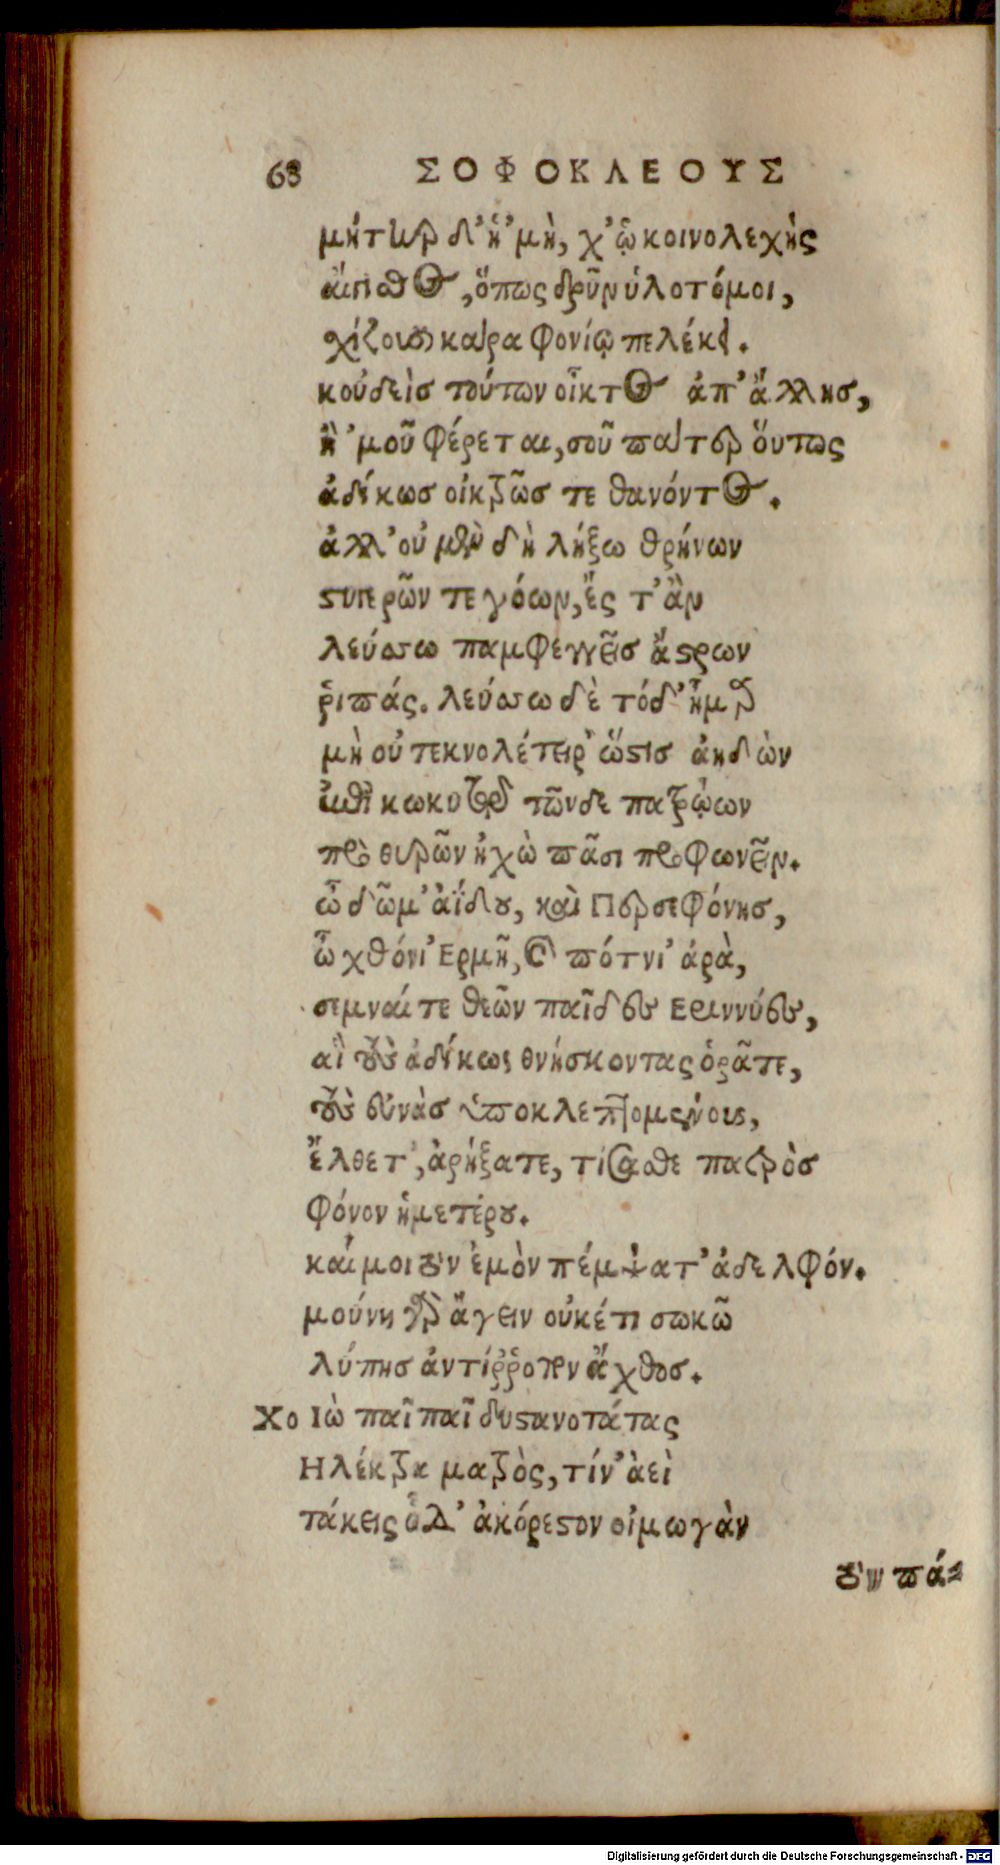 68 ΣΟΦΟΚΛΕΟΥΣ
μήτηρ δ' ἡ 'μὴ, χ' ᾧ κοινολεχὴς
αἴγισθος, ὅπως δρῦν ὑλοτόμοι,
σχίζουσι κάρα φονίῳ πελέκει.
κοὐδεὶσ τούτων οἶκτος ἀπ' ἄλλησ,
ἢ 'μοῦ φέρεται, σοῦ πάτερ ὅυτως
ἀδίκωσ οἰκτρῶσ τε θανόντος.
ἀλλ' οὐ μὲν δὴ λήξω θρήνων
στυγερῶν τε γόων, ἔς τ' ἂν
λεύσσω παμφεγγεῖσ ἄστρων
ῥιπάς. λεύσσω δὲ τόδ' ἦμαρ
μὴ οὐ τεκνολέτειρ' ὥστισ ἀηδὼν
ἐπὶ κωκυτῷ τῶνδε πατρῴων
πρὸ θυρῶν ἠχὼ πᾶσι προφωνεῖν.
ὦ δῶμ' ἀΐδου, καὶ Περσεφόνησ,
ὦ χθόνι' Ερμῆ, καὶ πότνι' ἀρὰ,
σεμναί τε θεῶν παῖδες Εριννύες,
αἳ τοὺς ἀδίκως θνήσκοντας ὁρᾶτε,
τοὺς εὐνὰσ ὑποκλεπτομένους,
ἔλθετ', ἀρήξατε, τίσασθε πατρὸσ
φόνον ἡμετέρου.
καί μοι τὸν ἐμὸν πέμψατ' ἀδελφόν.
μούνη γὰρ ἄγειν οὐκέτι σωκῶ
λύπησ ἀντίῤῥοπον ἄχθοσ.
Χο Ιὼ παῖ παῖ δυστανοτάτας
Ηλέκτρα ματρὸς, τίν' ἀεὶ
τάκεις ὧδ' ἀκόρεστον οἰμωγὰν
τὸν πά-
Digitalisierung gefördert durch die Deutsche Forschungsgemeinschaft - DFG